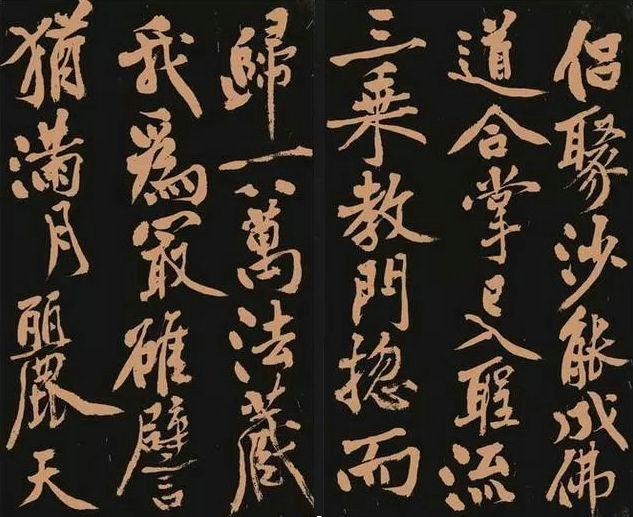 侶聚沙能成佛
道合掌已入聖流
三乘教門揔而
歸一八萬法藏
我爲冣雄譬
猶滿月麗天